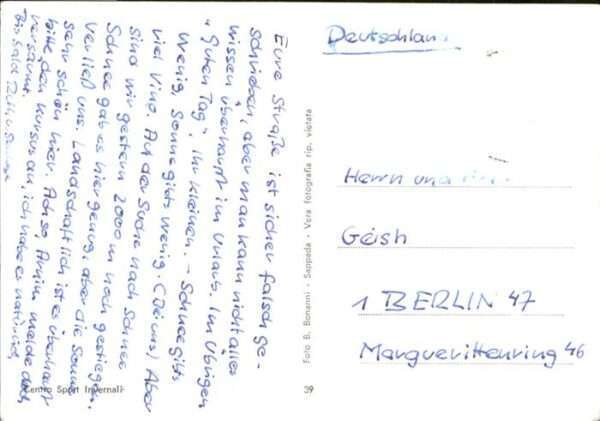 Eure Straße ist sicher falsch ge-
schrieben, aber man kann nicht alles
wissen, überhaupt im Urlaub. Im Übrigen
"Guten Tag", Ihr Kleinen. – Schnee gibts
wenig, Sonne gibts wenig. (Bei uns) Aber
viel Vino. Auf der Suche nach Schnee
sind wir gestern 2000 m hoch gestiegen.
Schnee gab es hier genug, aber die Sonne
verließ uns. Landschaftlich ist es überhaupt
sehr schön hier. Ach so, Armin melde doch
bitte den Kursus an, ich habe es natürlich
versäumt.
Bis bald
Centro Sport Invernali
39
Foto B. Bonanni - Sappada - Vera fotografia rip. vietata
Deutschland
Herrn und
Geish
1 BERLIN 47
Margueritenring 46